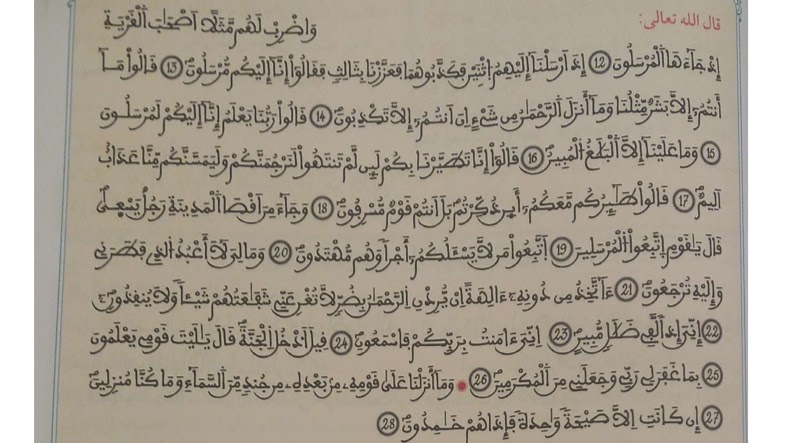 قال الله تعالى:
وَاضْرِبْ لَهُم مَّثَلًا اَصْحَٰبَ اَلْقَرْيَةِ
إِذْ جَآءَهَا اَلْمُرْسَلُونَ 12 إِذَ اَرْسَلْنَآ إِلَيْهِمُ اُثْنَيْنِ فَكَذَّبُوهُمَا فَعَزَّزْنَا بِثَالِثٍ فَقَالُوٓاْ إِنَّآ إِلَيْكُم مُّرْسَلُونَ 13 قَالُواْ مَآ
أَنتُمُۥٓ إِلَّا بَشَرٌ مِّثْلُنَا وَمَآ أَنزَلَ اَلرَّحْمَٰنُ مِن شَےْءٍ اِنَ اَنتُمُۥٓ إِلَّا تَكْذِبُونَ 14 قَالُواْ رَبُّنَا يَعْلَمُ إِنَّآ إِلَيْكُمْ لَمُرْسَلُونَ
15 وَمَا عَلَيْنَآ إِلَّا اَلْبَلَٰغُ اُلْمُبِينُ 16 قَالُوٓاْ إِنَّا تَطَيَّرْنَا بِكُمْ لَئِن لَّمْ تَنتَهُواْ لَنَرْجُمَنَّكُمْ وَلَيَمَسَّنَّكُم مِّنَّا عَذَابٌ
اَلِيمٌ 17 قَالُواْ طَٰٓئِرُكُم مَّعَكُمُۥٓ أَئِن ذُكِّرْتُم بَلَ اَنتُمْ قَوْمٌ مُّسْرِفُونَ 18 وَجَآءَ مِنَ اَقْصَا اَلْمَدِينَةِ رَجُلٌ يَسْعَىٰ
قَالَ يَٰقَوْمِ اِتَّبِعُواْ اُلْمُرْسَلِينَ 19 اَتَّبِعُواْ مَن لَّا يَسْـَٔلُكُمُۥٓ أَجْراً وَهُم مُّهْتَدُونَ 20 وَمَا لِيَ لَآ أَعْبُدُ اُلذِے فَطَرَنِے
وَإِلَيْهِ تُرْجَعُونَ 21 ءَآتَّخِذُ مِن دُونِهِۦٓ ءَالِهَةً اِنْ يُّرِدْنِ اِلرَّحْمَٰنُ بِضُرٍّ لَّا تُغْنِ عَنِّے شَفَٰعَتُهُمْ شَيْـٔاً وَلَا يُنقِذُونِۦٓ
22 إِنِّيَ إِذاً لَّفِے ضَلَٰلٍ مُّبِينٍ 23 اِنِّيَ ءَامَنتُ بِرَبِّكُمْ فَاسْمَعُونِ 24 قِيلَ اَدْخُلِ اِلْجَنَّةَ قَالَ يَٰلَيْتَ قَوْمِے يَعْلَمُونَ
25 بِمَا غَفَرَ لِے رَبِّے وَجَعَلَنِے مِنَ اَلْمُكْرَمِينَ 26 وَمَآ أَنزَلْنَا عَلَىٰ قَوْمِهِۦ مِنۢ بَعْدِهِۦ مِن جُندٍ مِّنَ اَلسَّمَآءِ وَمَا كُنَّا مُنزِلِينَ
27 إِن كَانَتِ اِلَّا صَيْحَةً وَٰحِدَةً فَإِذَا هُمْ خَٰمِدُونَ 28